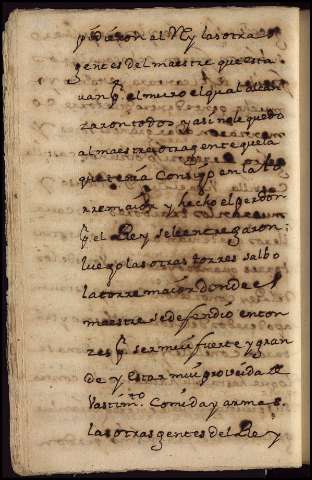 pidieron al Rey las otras
gentes del maestre que esta
van pr. el muro el qual
zaron todos y asi no le quedo
al maestre otra gente que la
que tenia Consigo en la to
rre maior y hecho el perdon
pr. el Rey se le entregaron
luego las otras torres salbo
la torre maior donde el
maestre se defendio enton
zes pr. ser mui fuerte y gran
de y Estar mui proveida de
Vastimto. Comida y armas.
las otras gentes del Rey